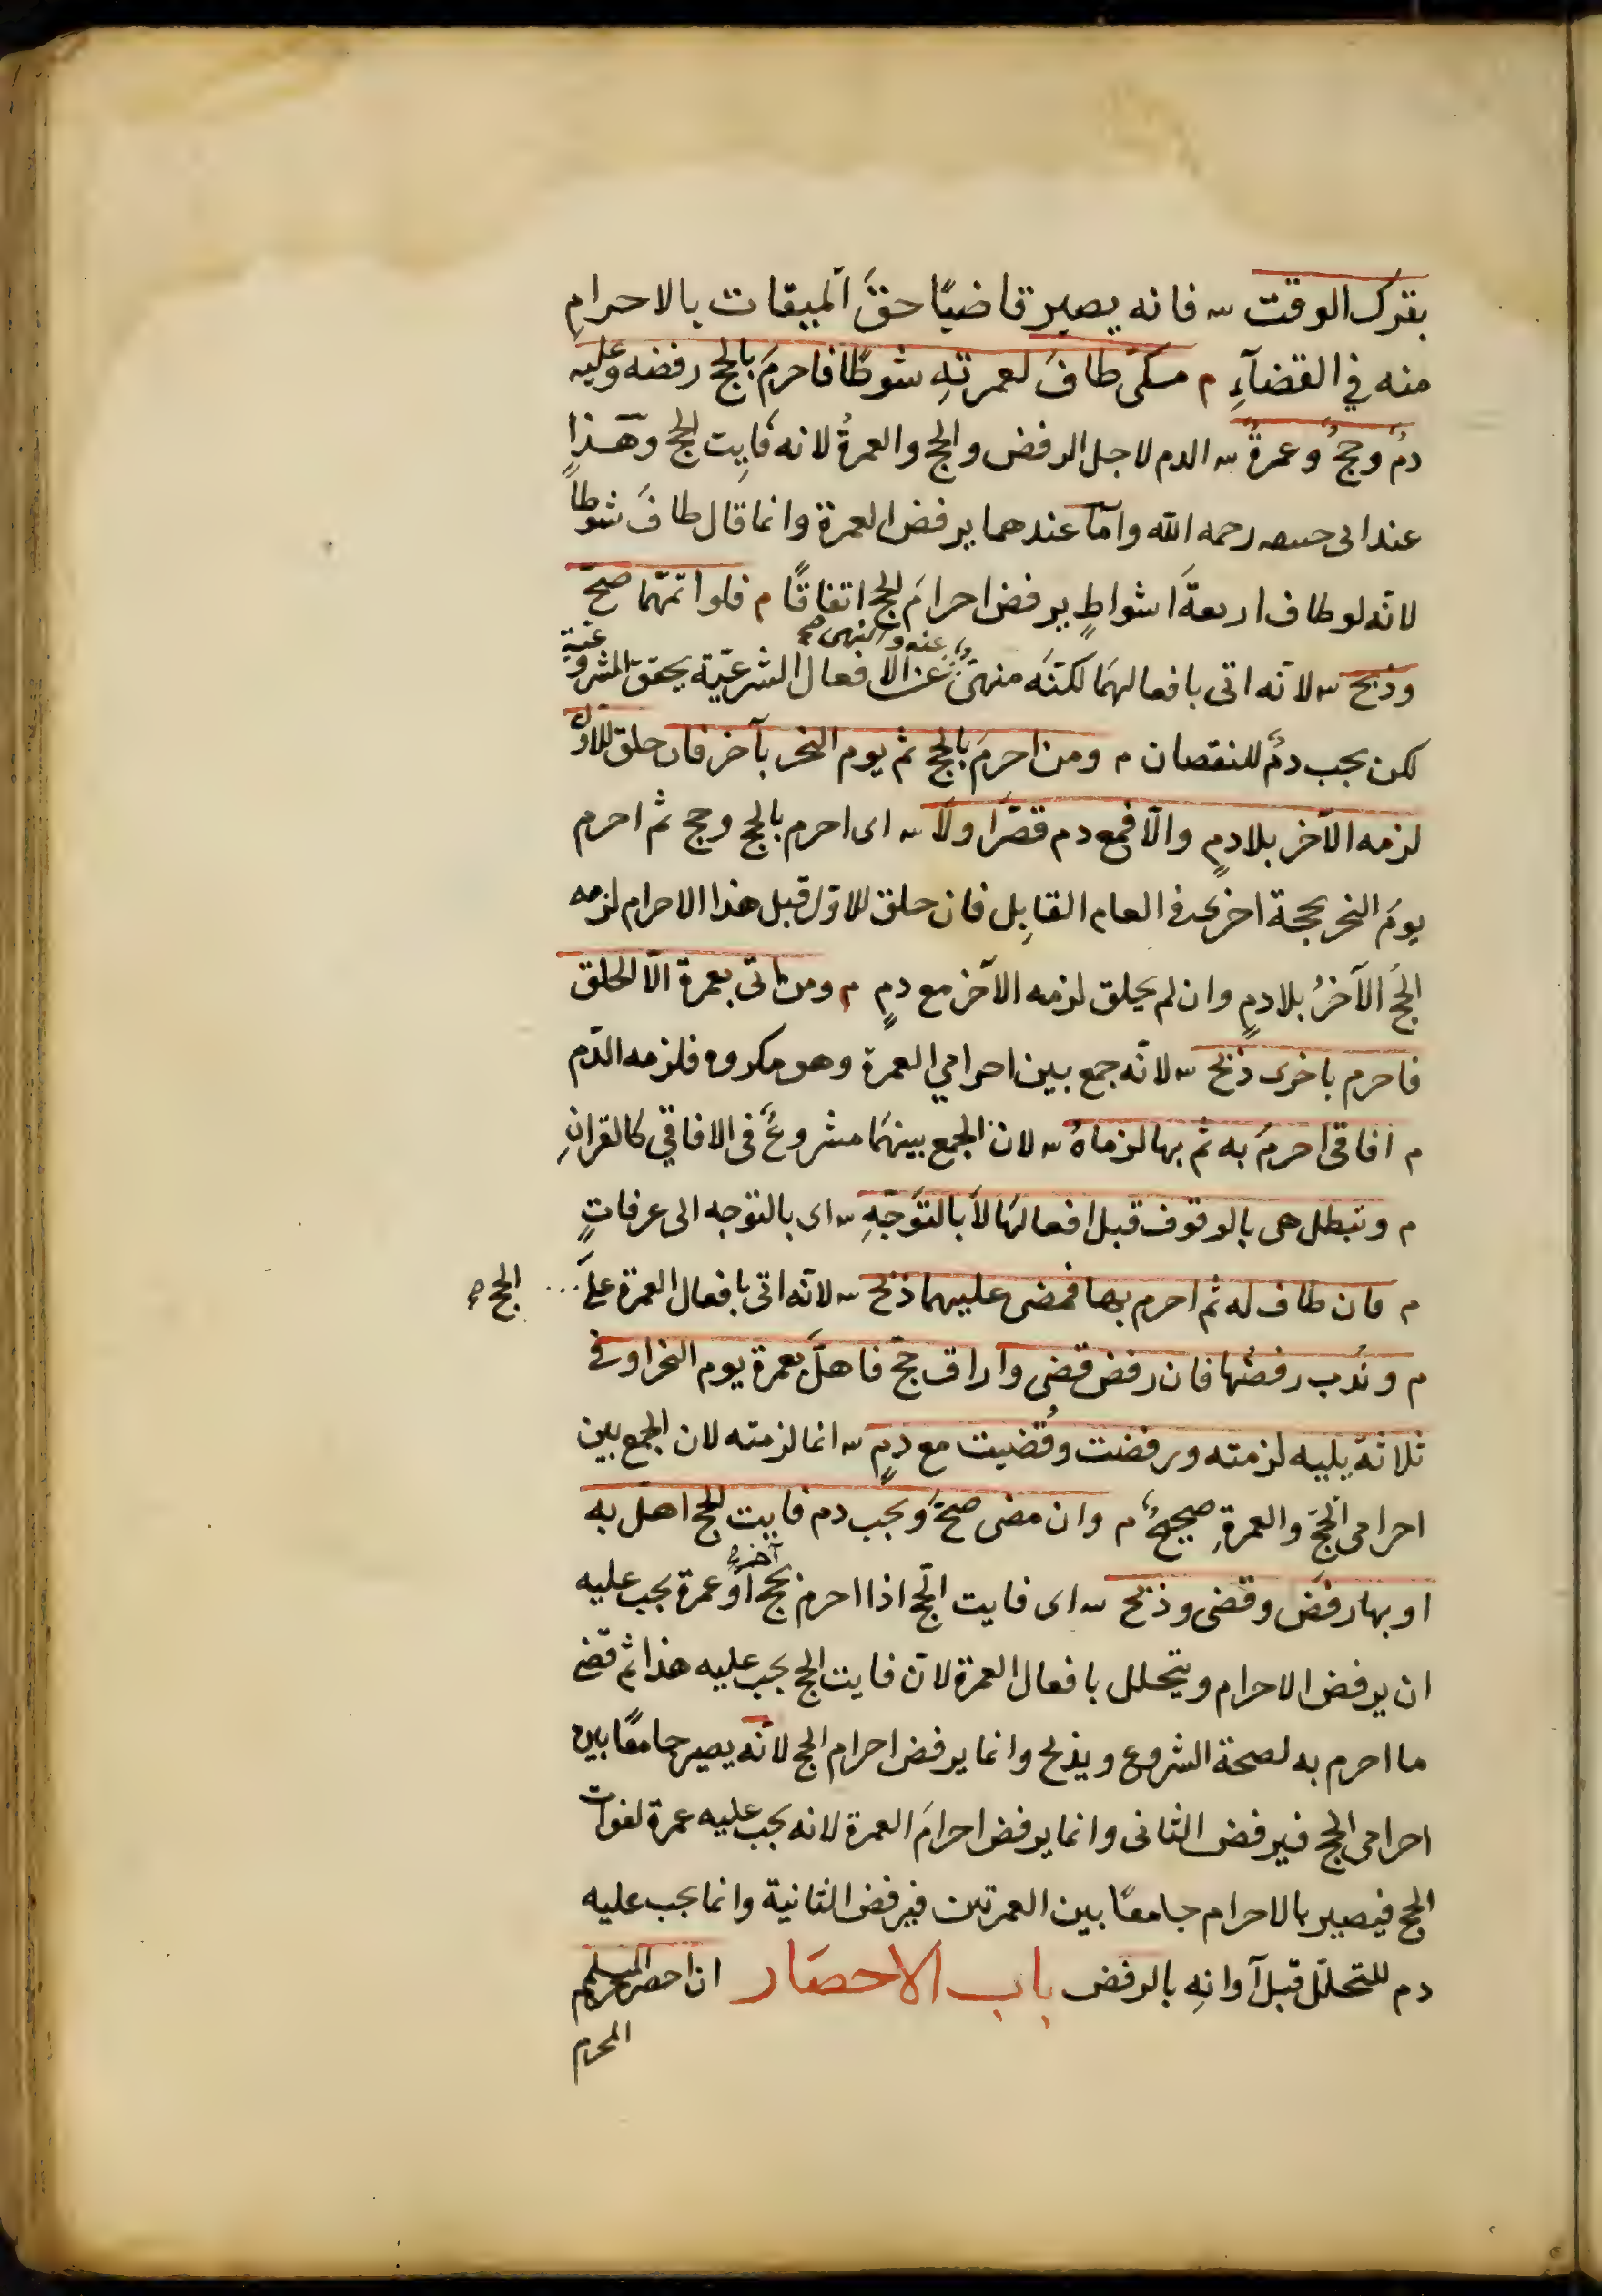 بترك الوقت س فانه يصير قاضيًا حقَّ الميقات بالاحرامِ
منه في القضآءِ م مكىّ طافَ لعمرتهِ شوطًا فاحرمَ بالحج رفضه وعليه
دمٌ وحجٌّ وعمرةٌ س الدم لاجل الرفض والحج والعمرةُ لانه فايِت الحج وهذا
عند ابى حنيفه رحمه الله وامّا عندهما يرفض العمرة وانما قال طافَ شوطاً
لانّه لو طاف اربعةَ اشواطٍ يرفض احرامَ الحج اتفاقًا م فلو اتمّهما صحّ
وذبح س لانّه اتى بافعالهمَا لكنّه منهىٌّ عنه والنهى صح عن الافعال الشرعيّة يحقق المشروعية
لكن يجب دمٌ للنقصان م ومن احرمَ بالحج ثم يوم النحر بآخر فان حلق للاوّل
لزمه الآخر بلا دمٍ والّا فمع دم قصّرَ اولَا س اى احرم بالحج وحج ثم احرم
يومَ النحر بحجة اخرىٰ فى العام القابِل فان حلق للاوّل قبل هذا الاحرام لزمه
الحجُ الآخرُ بلا دمٍ وان لم يحلق لزمه الآخر مع دمٍ م ومن اتى بعمرة الّا الحلق
فاحرم باخرى ذبح س لانّه جمع بين احرامي العمرة وهو مكروه فلزمه الدّم
م افاقى احرمَ به ثم بها لزماهُ س لان الجمع بينهمَا مشروعٌ فى الافاقي كالقرانِ
م وتبطل هى بالوقوف قبل افعالهَا لاَ بالتوَجّهِ س اى بالتوجه الى عرفاتٍ
م فان طاف له ثم احرم بها فمضى عليهما ذبح س لانّه اتى بافعال العمرة علىَ ... الحج صح
م ونُدب رفضُها فان رفض قضى واراق حجّ فاهلَّ بعمرة يوم النحر او فى
ثلاثة يليه لزمته ورفضت وقُضيت مع دمٍ س انما لزمته لان الجمع بين
احرامى الحجّ والعمرةِ صحيحٌ م وان مضى صحّ ويجب دم فايت الحج اهلّ به
او بها رفضَ وقضى وذبح س اى فايت الحج اذا احرم بحج آخر صح او عمرة يجب عليه
ان يرفض الاحرام ويتحلل بافعال العمرة لانّ فايت الحج يجب عليه هذا ثم قضى
ما احرم به لصحة الشروع ويذبح وانما يرفض احرام الحج لانّه يصير جامعًا بين
احرامى الحج فيرفض الثانى وانما يرفض احرامَ العمرة لانه يجب عليه عمرة لفوات
الحج فيصير بالاحرام جامعًا بين العمرتين فيرفض الثانية وانما يجب عليه
دم للتحلّل قبل آوانهِ بالرفض باب الاحصَار ان احصر
المحرم